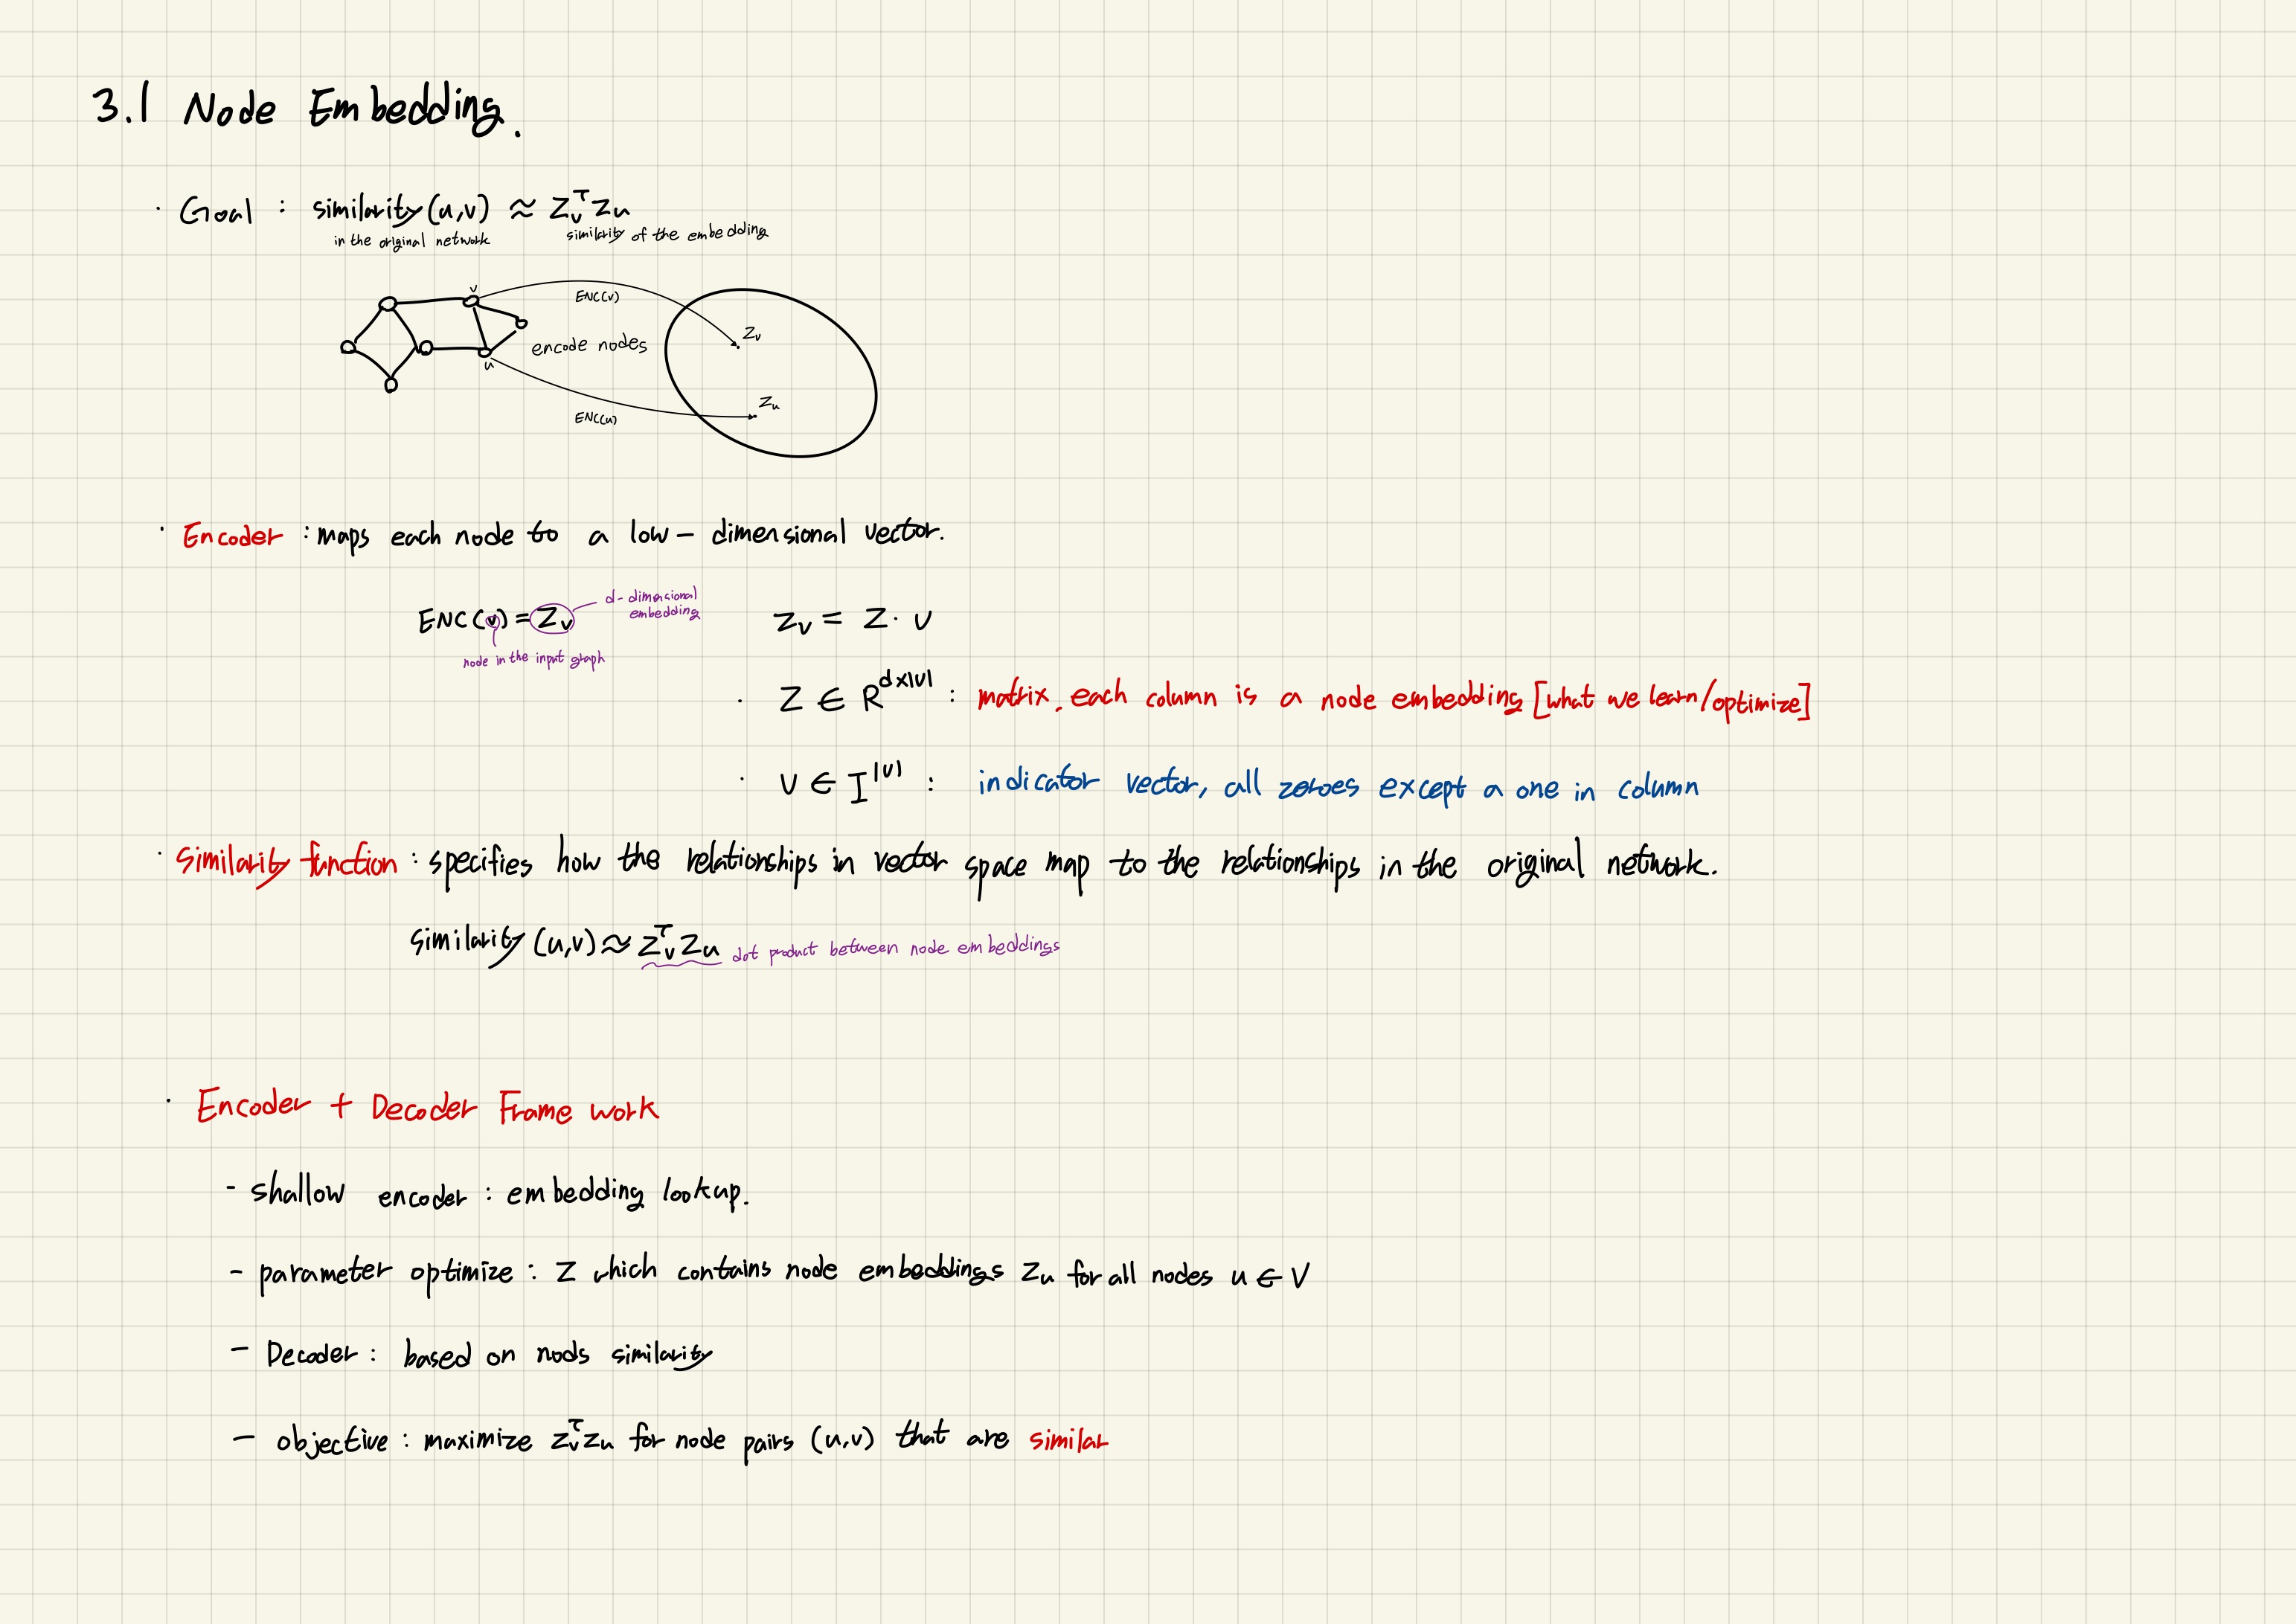 3.1 Node Embedding.
· Goal : similarity(u,v) ≈ Zᵥᵀ Zᵤ
in the original network similarity of the embedding
v
ENC(v)
Zᵥ
encode nodes
u
Zᵤ
ENC(u)
· Encoder : maps each node to a low - dimensional vector.
d - dimensional
embedding
ENC(v) = Zᵥ
Zᵥ = Z · v
node in the input graph
· Z ∈ R^{d×|v|} : matrix, each column is a node embedding [what we learn/optimize]
· v ∈ I^{|v|} : indicator vector, all zeroes except a one in column
· Similarity function : specifies how the relationships in vector space map to the relationships in the original network.
Similarity (u,v) ≈ Zᵥᵀ Zᵤ dot product between node embeddings
· Encoder + Decoder Frame work
- shallow encoder : embedding lookup.
- parameter optimize : Z which contains node embeddings Zᵤ for all nodes u ∈ V
- Decoder : based on nods similarity
- objective : maximize Zᵥᵀ Zᵤ for node pairs (u,v) that are similar